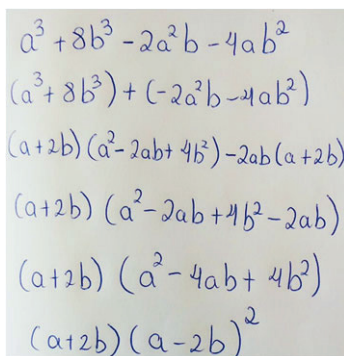 a³ + 8b³ - 2a²b - 4ab²
(a³ + 8b³) + (-2a²b - 4ab²)
(a+2b) (a² - 2ab + 4b²) - 2ab (a+2b)
(a+2b) (a² - 2ab + 4b² - 2ab)
(a+2b) (a² - 4ab + 4b²)
(a+2b) (a - 2b)²